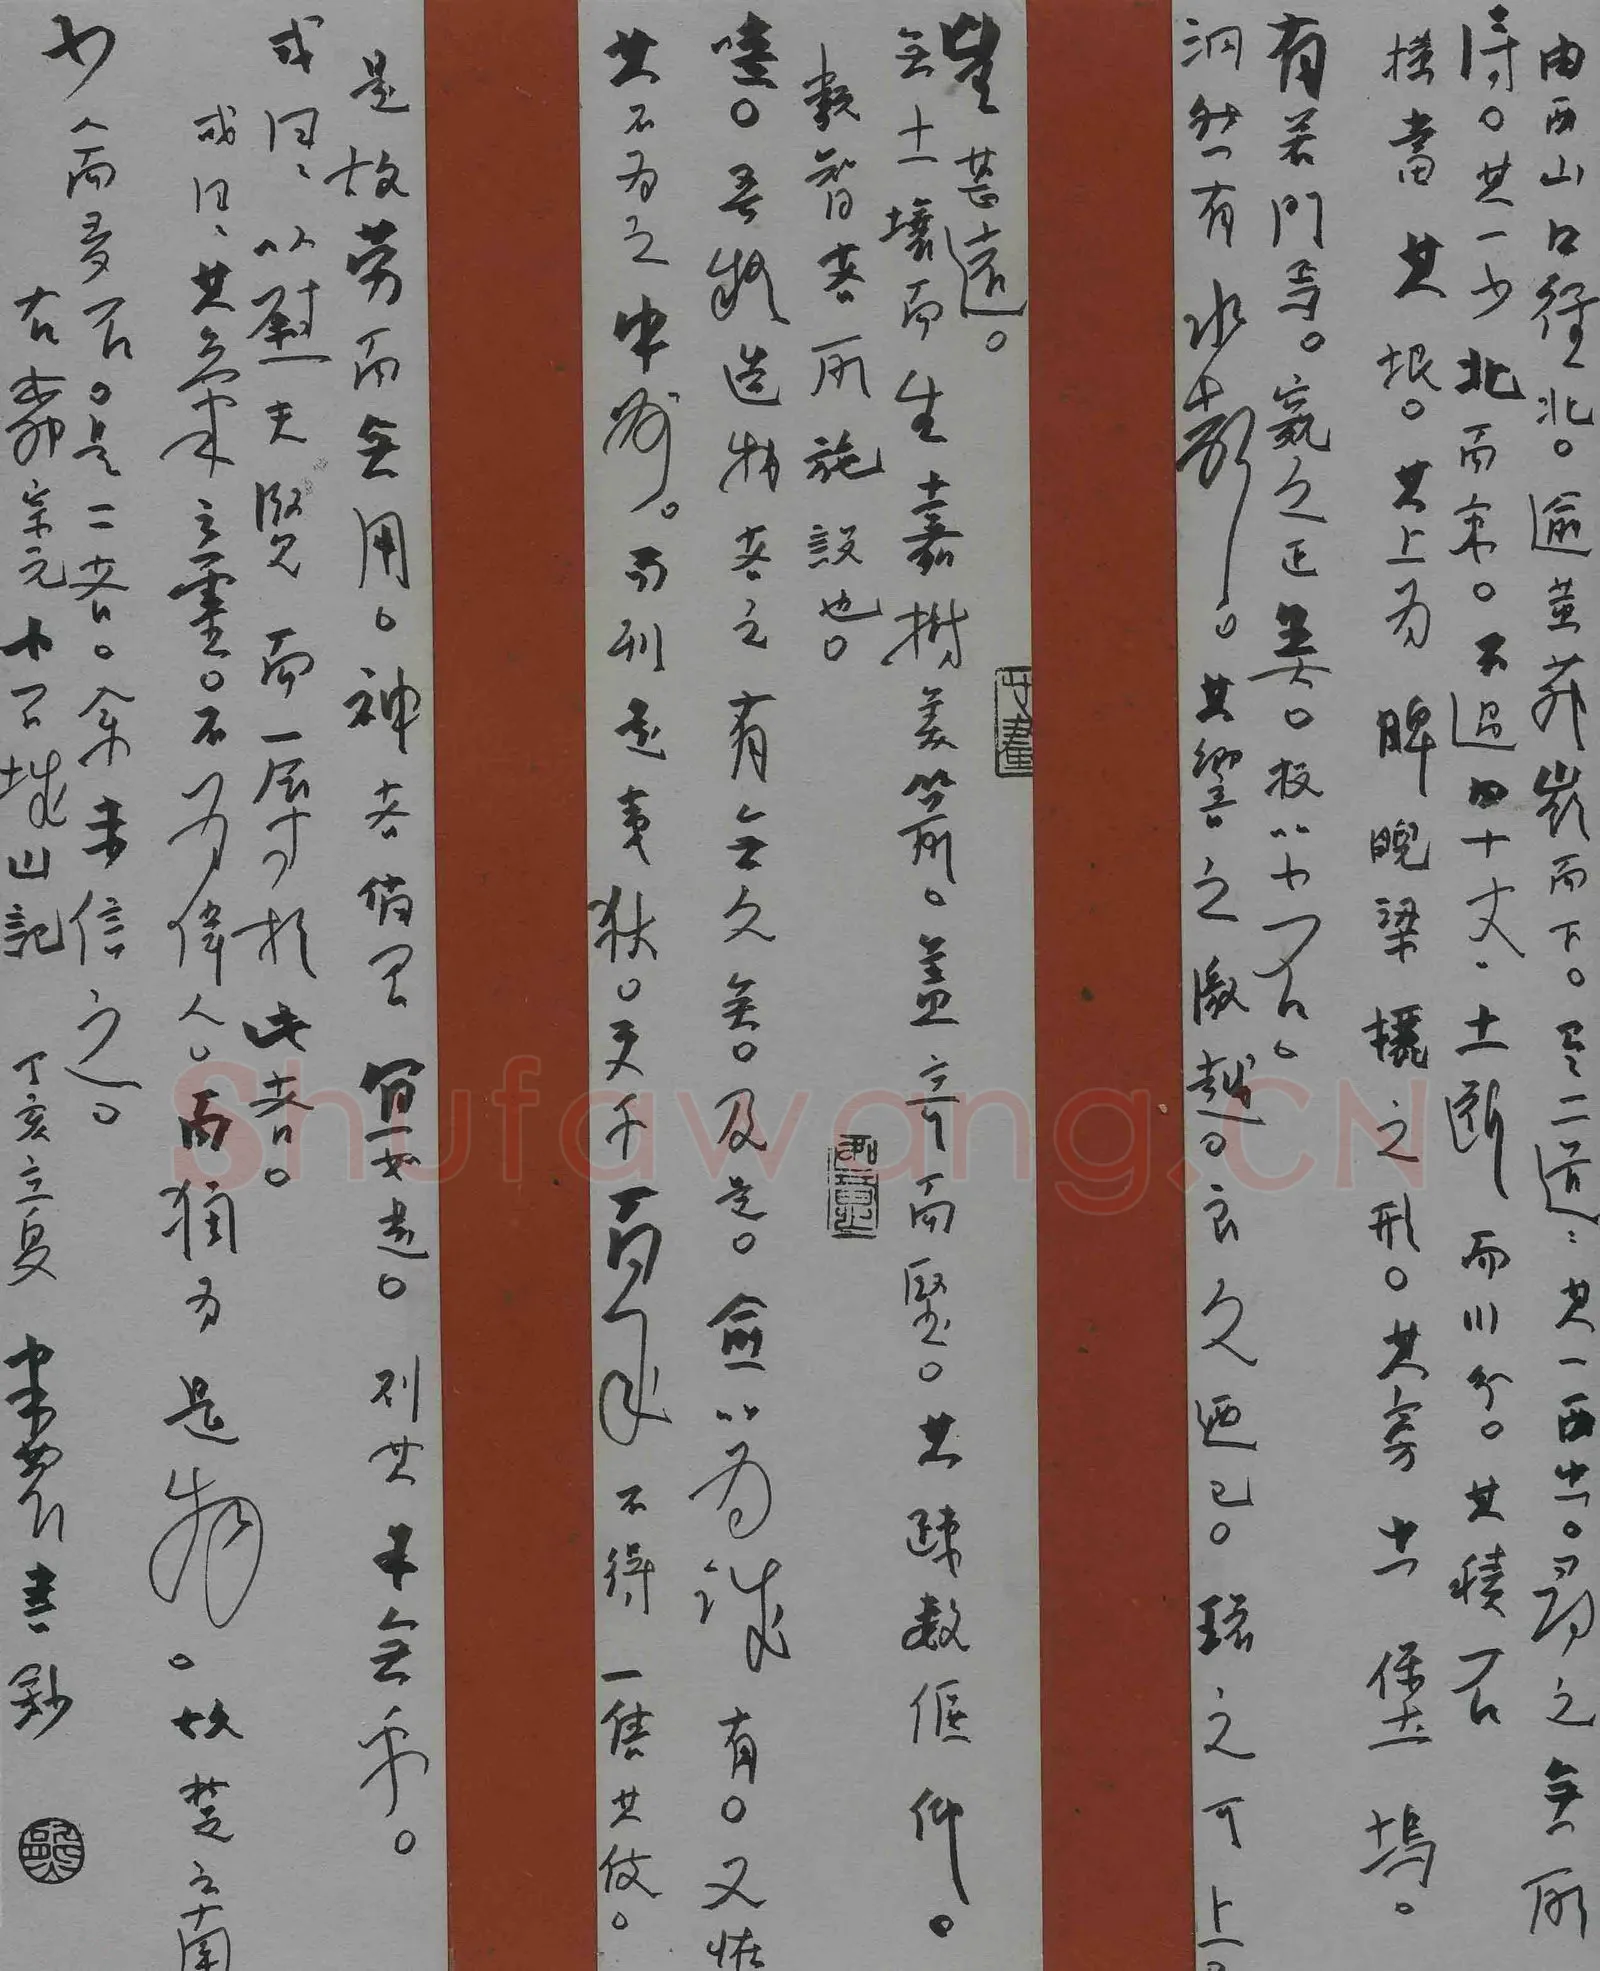 由西山口徑北。逾黃茅嶺而下。至二道：其一西出。尋之無所
得。其一少北而東。不過四十丈．土斷而川分。其積石
橫當其垠。其上为睥睨梁欐之形。其旁出堡塢。
有若門焉。窺之正黑。投以小石。
洞然有水聲。其響之激越。良久迺已。環之可上。
望甚遠。
無土壤而生嘉樹美箭。益奇而堅。其疎数偃仰。
智者所施設也。
噫。吾疑造物者之有無久矣。及是。愈以为誠有。又怪
其不为之中州。而列是夷狄。更千百年不得一售其伎。
是故勞而無用。神者倘宜如是。則其無乎。
或曰、以慰夫賢而一辱於此者。
或曰、其氣之靈。不为偉人。而獨为是物。故楚之南
少人而多石。是二者。余未信之。
右柳宗元小石城山記 丁亥立夏 書鈔
Shufawang.CN